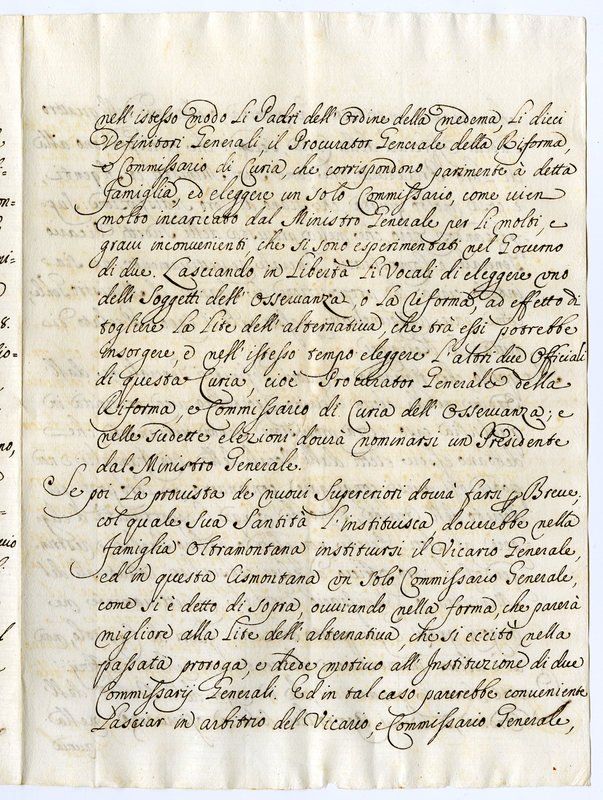 nell' istesso modo Li Padri dell' Ordine della medema, Li dieci
Definitori Generali, il Procurator Generale della Riforma,
e Commissario di Curia, che corrispondono parimente à detta
famiglia, ed eleggere un solo Commissario, come vien
molto incaricato dal Ministro Generale per Li molti, e
gravi inconvenienti che si sono esperimentati nel Governo
di due. Lasciando in Libertà Li Vocali di eleggere uno
delli Soggetti dell' Osservanza, o La riforma, ad effetto di
togliere La Lite dell' alternativa, che trà essi potrebbe
insorgere, e nell' istesso tempo eleggere L' altri due Officiali
di questa Curia, cioè Procurator Generale della
Riforma, e Commissario di Curia dell' Osservanza; e
nelle sudette elezioni dovrà nominarsi un Presidente
dal Ministro Generale.
Se poi La provista de nuovi Supereriori dovrà farsi Breve,
col quale Sua Santità L' instituisca, doverebbe nella
famiglia Oltramontana instituirsi il Vicario Generale,
ed in questa Cismontana un solo Commissario Generale,
come si è detto di sopra, ovviando nella forma, che parerà
migliore alla Lite dell' alternativa, che si eccitò nella
passata proroga, e diede motivo all' Instituzione di due
Commissarij Generali. Ed in tal caso parerebbe conveniente
Lasciar in arbitrio del Vicario, e Commissario Generale,